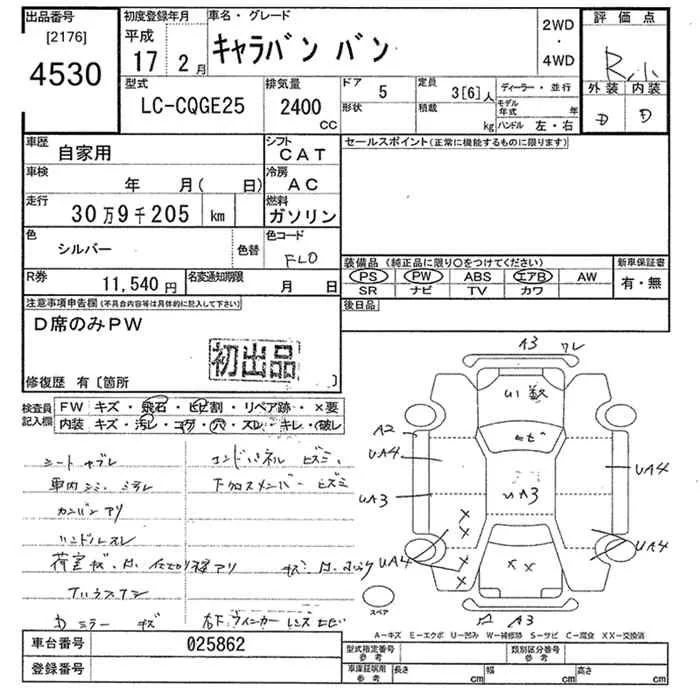 出品番号 初度登録年月 車名・グレード 2WD・4WD 評価点
[2176] 4530 平成 17 2月 キャラバン バン R.小
型式 排気量 ドア 5 定員 3[6]人 ディーラー・並行 外装 内装
LC-CQGE25 2400 CC 形状 積載 kg モデル年式 年 D D
ハンドル 左・右
車歴 自家用 シフト CAT セールスポイント(正常に機能するものに限ります)
車検 年 月( 日) 冷房 AC
走行 30万9千205 km 燃料 ガソリン
色 シルバー 色替 色コード FLO
装備品(純正品に限り○をつけてください) 新車保証書
PS PW ABS エアB AW 有・無
SR ナビ TV カワ
R券 11,540円 名変通知期限 月 日 後日品
注意事項申告欄(不具合内容等は具体的に記入して下さい)
D席のみPW
初出品
修復歴 有〔箇所 〕
検査員記入欄 FW キズ・飛石・ヒビ割・リペア跡・×要
内装 キズ・汚レ・コゲ・穴・スレ・キレ・破レ
シートヤブレ コンドパネル ヒズミ、
下クロスメンバー ヒズミ
カンバンアリ
ハンドルスレ
ミラー キズ 右F ウィンカーレンズ ヒビ
A3
A2
UA4
UA3
UA4
UA3
UA4
UA4
A3
スペア
A-キズ E-エクボ U-凹み W-補修跡 S-サビ C-腐食 XX-交換済
車台番号 025862 型式指定番号 参考 類別区分番号 参考
登録番号 車庫証明用 参考 長さ cm 幅 cm 高さ cm